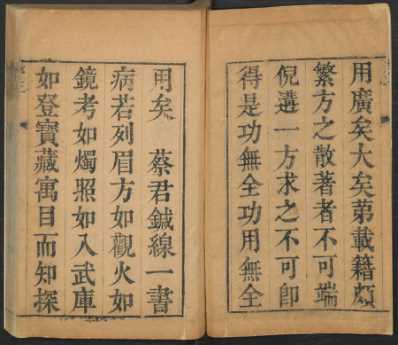 用廣矣大矣第載籍頗
繁方之散著者不可端
倪遘一方求之不可卽
得是功無全功用無全
用矣　蔡君鍼線一書
病若列眉方如觀火如
鏡考如燭照如入武庫
如登寶藏寓目而知探